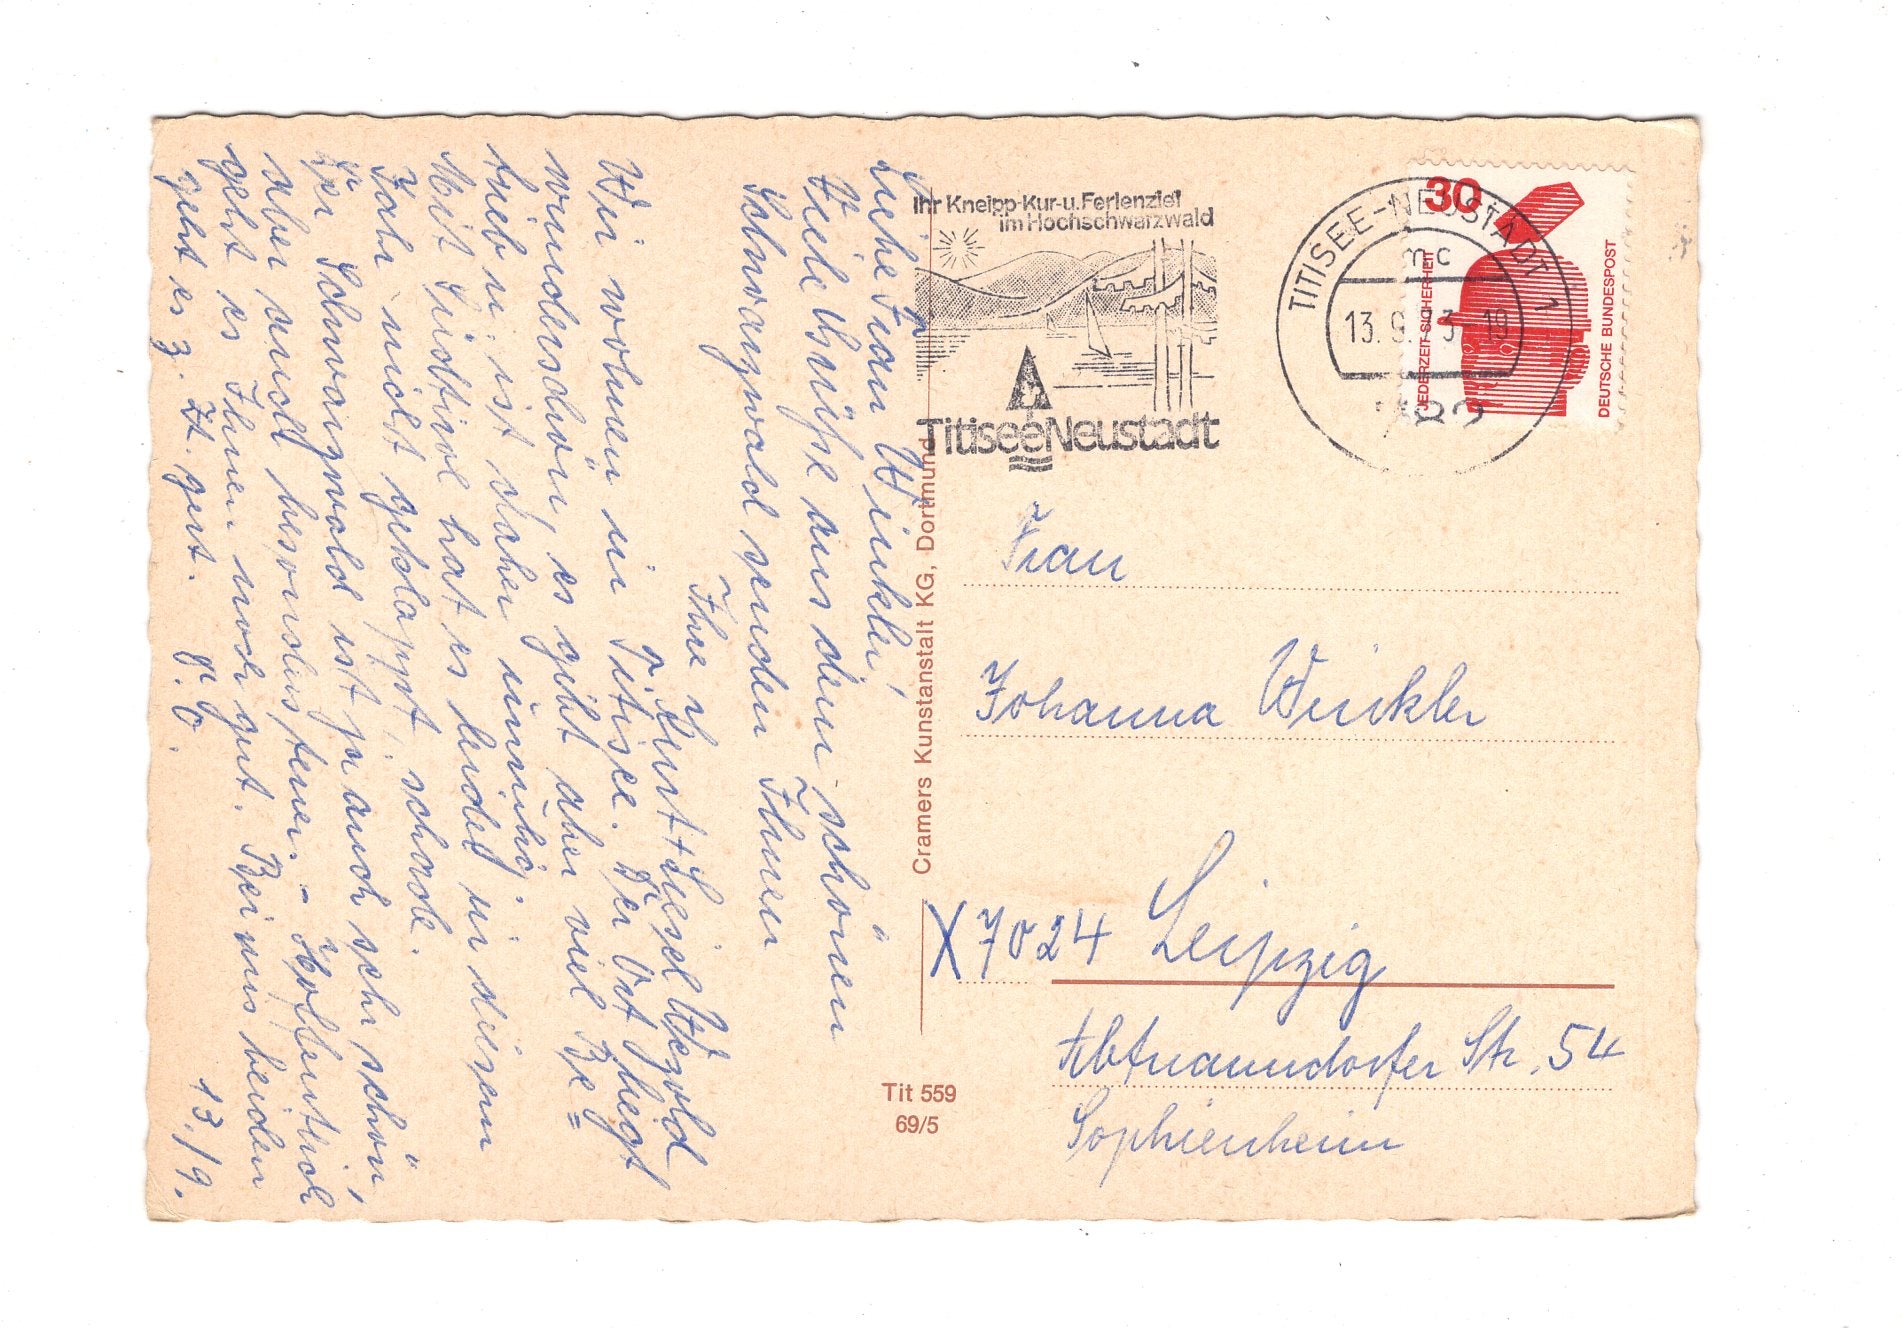 Liebe Frau Winkler,
Viele Grüße aus dem schönen
Schwarzwald senden Ihnen
Ihre
Kurt + Liesel Wegold
Wir wohnen in Titisee. Der Ort liegt
wunderschön, es gibt aber viel Be=
trieb u. ist daher unruhig.
Mit Südtirol hat es leider in diesem
Jahr nicht geklappt, schade.
Der Schwarzwald ist ja auch sehr schön,
aber auch besonders teuer. – Hoffentlich
geht es Ihnen noch gut. Bei uns beiden
geht es z. Zt. gut. D. O. 13./9.
Ihr Kneipp-Kur-u. Ferienziel
im Hochschwarzwald
Titisee Neustadt
TITISEE-NEUSTADT 1
mc
13. 9. 73 - 19
782
30
JEDERZEIT SICHERHEIT
DEUTSCHE BUNDESPOST
Cramers Kunstanstalt KG, Dortmund
Tit 559
69/5
Frau
Johanna Winkler
X7024 Leipzig
Abtnaundorfer Str. 54
Sophienheim